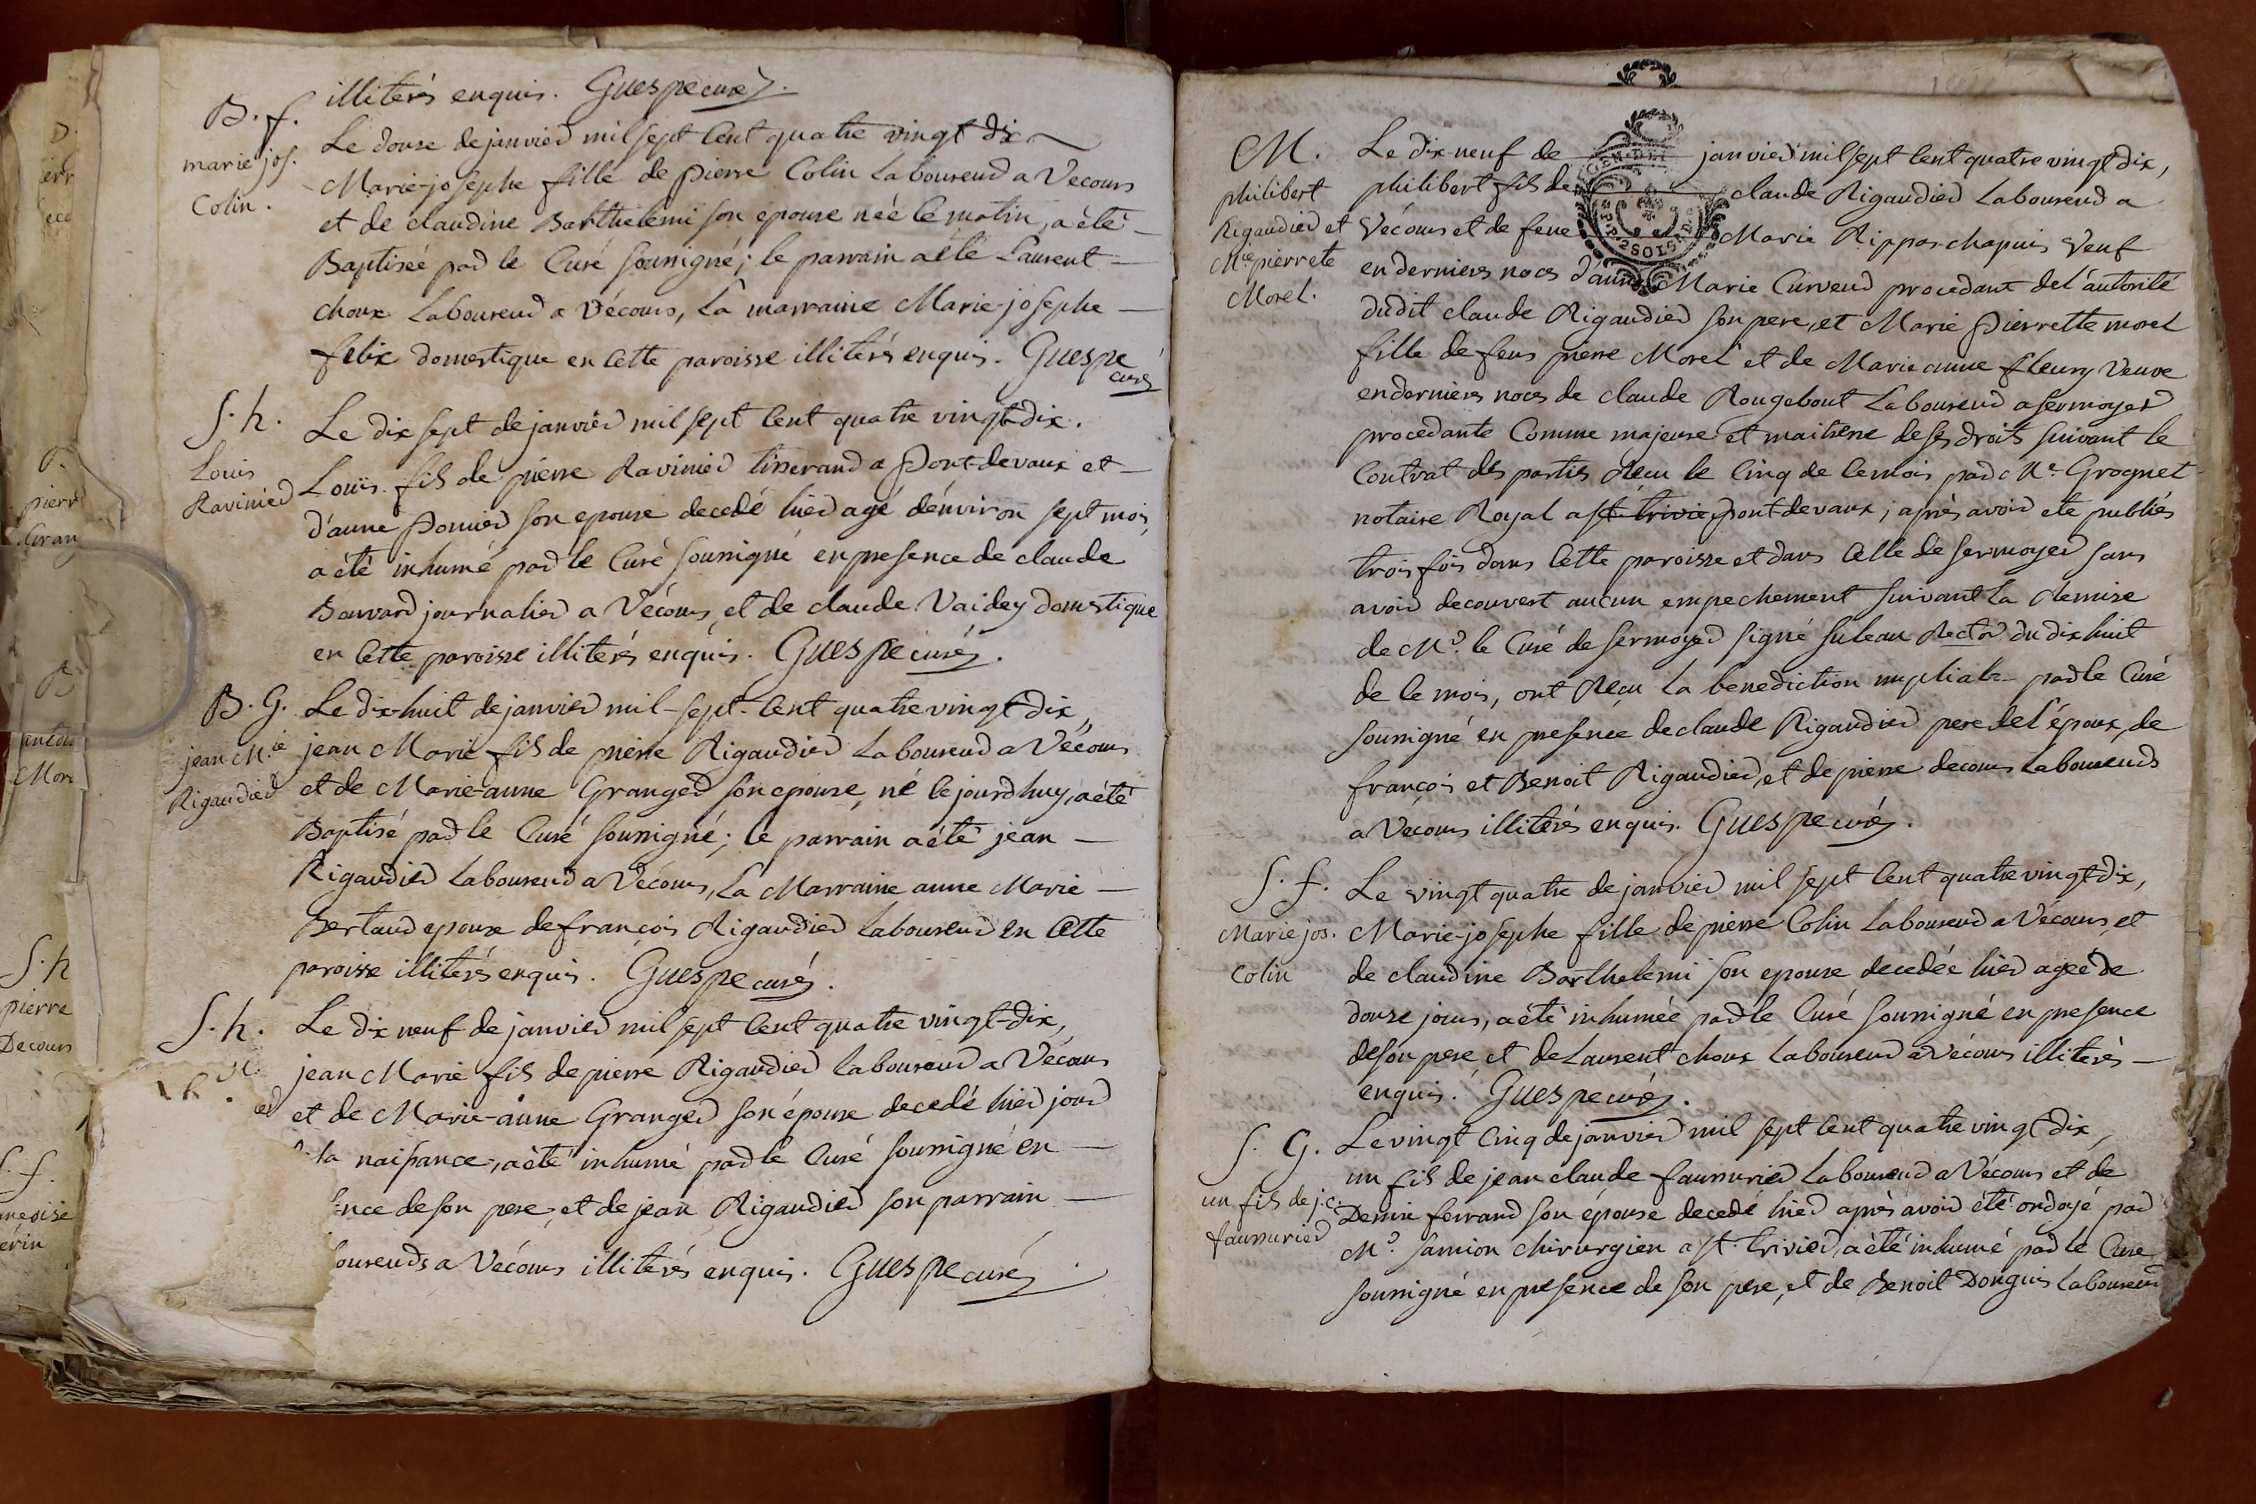 illiterés enquis. Guespe curé.
B. f.
marie jos.
Colin.
Le douse de janvier mil sept cent quatre vingt dix
Marie-josephe fille de pierre Colin Laboureur a Vécours
et de claudine Barthelemi son epouse née le matin, a été
Baptisée par le Curé soussigné; le parrain a été Laurent
choux Laboureur a Vécours, La marraine Marie-josephe
felix domestique en cette paroisse illiterés enquis. Guespe
curé
S. h.
Louis
Ravinier
Le dix sept de janvier mil sept cent quatre vingt-dix.
Louis fils de pierre Ravinier tisserand a Pont-devaux et
d'anne Ponier son epouse decedé hier agé d'environ sept mois,
a été inhumé par le Curé soussigné en presence de claude
Bouvard journalier a Vécours, et de claude Vaidey domestique
en cette paroisse illiterés enquis. Guespe curé.
B. G.
jean M.ie
Rigaudier
Le dix-huit de janvier mil-sept-cent quatre vingt-dix,
jean Marie fils de pierre Rigaudier Laboureur a Vécours
et de Marie-anne Granger son epouse, né cejourdhuy, a été
Baptisé par le Curé soussigné; le parrain a été jean
Rigaudier Laboureur a Vécours, La Marraine anne Marie
Bertaud epouse de françois Rigaudier Laboureur en cette
paroisse illiterés enquis. Guespe curé.
S. h.
Le dix neuf de janvier mil sept cent quatre vingt-dix,
jean Marie fils de pierre Rigaudier Laboureur a Vécours
et de Marie-anne Granger son épouse decedé hier jour
la naissance, a été inhumé par le Curé soussigné en
ence de son pere, et de jean Rigaudier son parrain
boureurs a Vécours illiterés enquis. Guespe curé
M.
philibert
Rigaudier et
M.ie pierrete
Morel.
Le dix neuf de janvier mil sept cent quatre vingt dix,
philibert fils de claude Rigaudier Laboureur a
Vécours et de feue Marie Rippas-chapuis Veuf
en dernieres noces d'anne Marie Curveur procedant de l'autorité
dudit claude Rigaudier son pere, et Marie Pierrette morel
fille de feus pierre Morel et de Marie anne fleury Veuve
en dernieres noces de claude Rougebout Laboureur a sermoyer
procedante Comme majeure et maitresse de ses droits suivant le
Contrat des parties Reçu le Cinq de ce mois par M.e Grognet
notaire Royal a st trivier pont devaux; après avoir été publiés
trois fois dans cette paroisse et dans celle de sermoyer sans
avoir decouvert aucun empechement suivant la Remise
de M.r le Curé de sermoyer signé suleau Rector du dix huit
de ce mois, ont Reçu La benediction nuptiale par le Curé
soussigné en presence de claude Rigaudier pere de l'époux, de
françois et Benoit Rigaudier, et de pierre decours Laboureurs
a Vécours illiterés enquis. Guespe curé.
S. f.
Marie jos.
Colin
Le vingt quatre de janvier mil sept cent quatre vingt-dix,
Marie-josephe fille de pierre Colin Laboureur a Vécours, et
de claudine Barthelemi son epouse decedée hier agée de
douze jours, a été inhumée par le Curé soussigné en presence
de son pere et de Laurent choux Laboureur a Vécours illiterés
enquis. Guespe curé.
S. G.
un fils de j. c.
faussurier
Le vingt Cinq de janvier mil sept cent quatre vingt dix,
un fils de jean claude faussurier Laboureur a Vécours et de
Denise ferrand son épouse decedé hier après avoir été ondoyé par
M.r samion chirurgien a st. trivier, a été inhumé par le Curé
soussigné en presence de son pere, et de Benoit Donguis Laboureur
S. h
pierre
Decours
S. f.